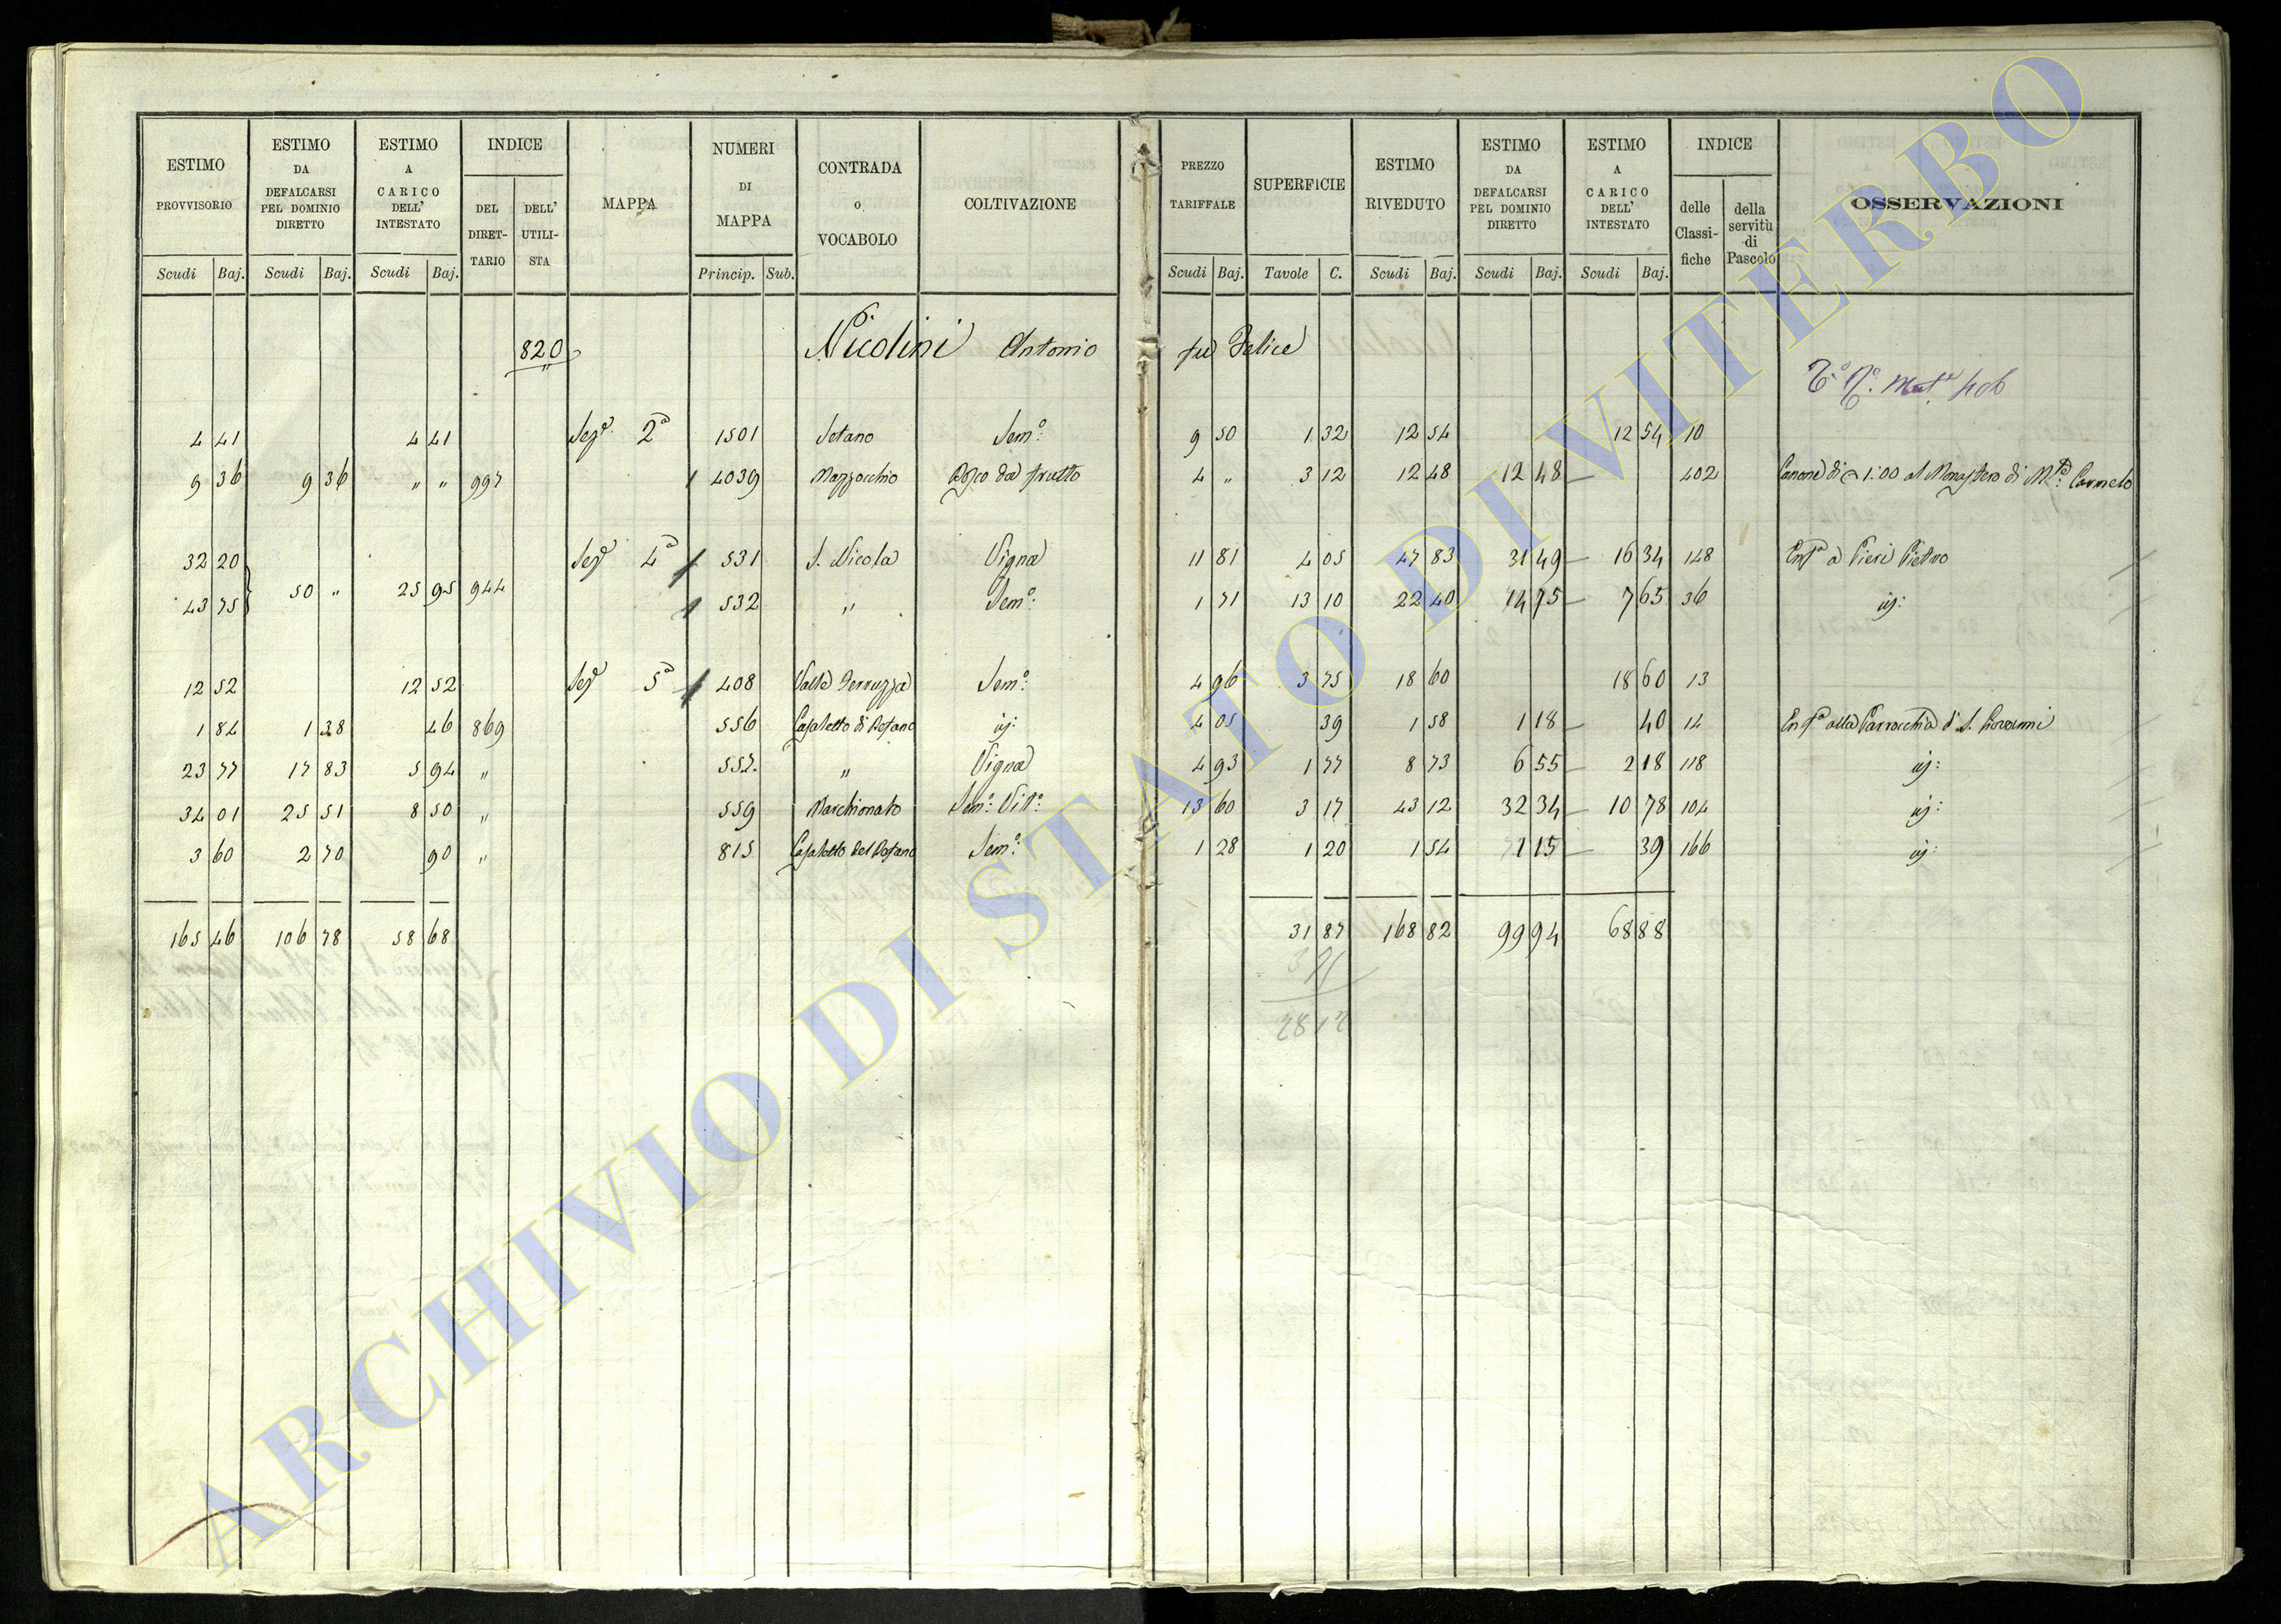 ESTIMO PROVVISORIO Scudi Baj.
ESTIMO DA DEFALCARSI PEL DOMINIO DIRETTO Scudi Baj.
ESTIMO A CARICO DELL' INTESTATO Scudi Baj.
INDICE DEL DIRETTARIO DELL' UTILISTA
MAPPA
NUMERI DI MAPPA Princip. Sub.
CONTRADA o VOCABOLO
COLTIVAZIONE
PREZZO TARIFFALE Scudi Baj.
SUPERFICIE Tavole C.
ESTIMO RIVEDUTO Scudi Baj.
ESTIMO DA DEFALCARSI PEL DOMINIO DIRETTO Scudi Baj.
ESTIMO A CARICO DELL' INTESTATO Scudi Baj.
INDICE delle Classifiche della servitù di Pascolo
OSSERVAZIONI
820 Nicolini Antonio fu Felice
Mat. 406
4 41 4 41 Sez. 2a 1501 Setano Sem.o 9 50 1 32 12 54 12 54 10
9 36 9 36 " " 997 4039 Mazzocchio da frutto 4 " 3 12 12 48 12 48 402 Canone di 1:00 al Monastero di Carmelo
32 20 Sez. 4a 531 S. Nicola Vigna 11 81 4 05 47 83 31 49 16 34 148 Enf.a a Pieri Pietro
43 75 50 " 25 95 944 532 " Sem.o 1 71 13 10 22 40 14 75 7 65 36 ij:
12 52 12 52 Sez. 5a 408 Valle Sem.o 4 96 3 75 18 60 18 60 13
1 84 1 38 46 869 556 Casaletto di ij: 4 05 39 1 58 1 18 40 14 Enf.a alla Parrocchia di S. Giovanni
23 77 17 83 5 94 " 557. " Vigna 4 93 1 77 8 73 6 55 2 18 118 ij:
34 01 25 51 8 50 " 559 Marchionato Sem.o Vit.o 13 60 3 17 43 12 32 34 10 78 104 ij:
3 60 2 70 90 " 815 Casaletto del Sem.o 1 28 1 20 1 54 1 15 39 166 ij:
165 46 106 78 58 68 31 87 168 82 99 94 68 88
ARCHIVIO DI STATO DI VITERBO